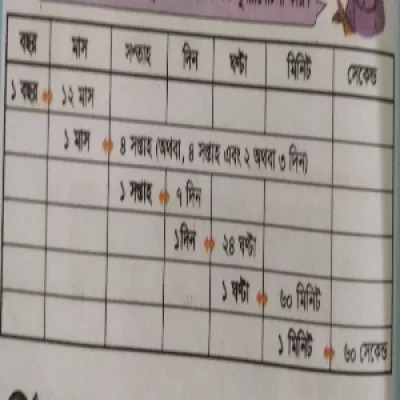 বছর মাস সপ্তাহ দিন ঘণ্টা মিনিট সেকেন্ড
১ বছর ১২ মাস
১ মাস ৪ সপ্তাহ (অথবা, ৪ সপ্তাহ এবং ২ অথবা ৩ দিন)
১ সপ্তাহ ৭ দিন
১দিন ২৪ ঘণ্টা
১ ঘণ্টা ৬০ মিনিট
১ মিনিট ৬০ সেকেন্ড